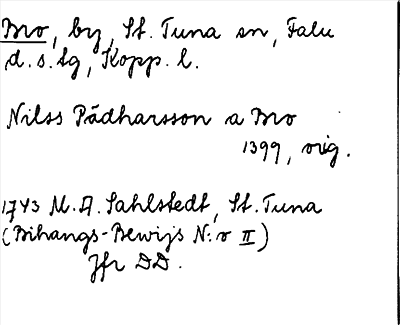 Mo, by, St. Tuna sn, Falu
d.s.lg, Kopp. l.
Nilss Pädharsson a Mo
1399, orig.
1743 M.A. Sahlstedt, St. Tuna
(Bihangs-Bewijs N:o II)
Jfr DD.